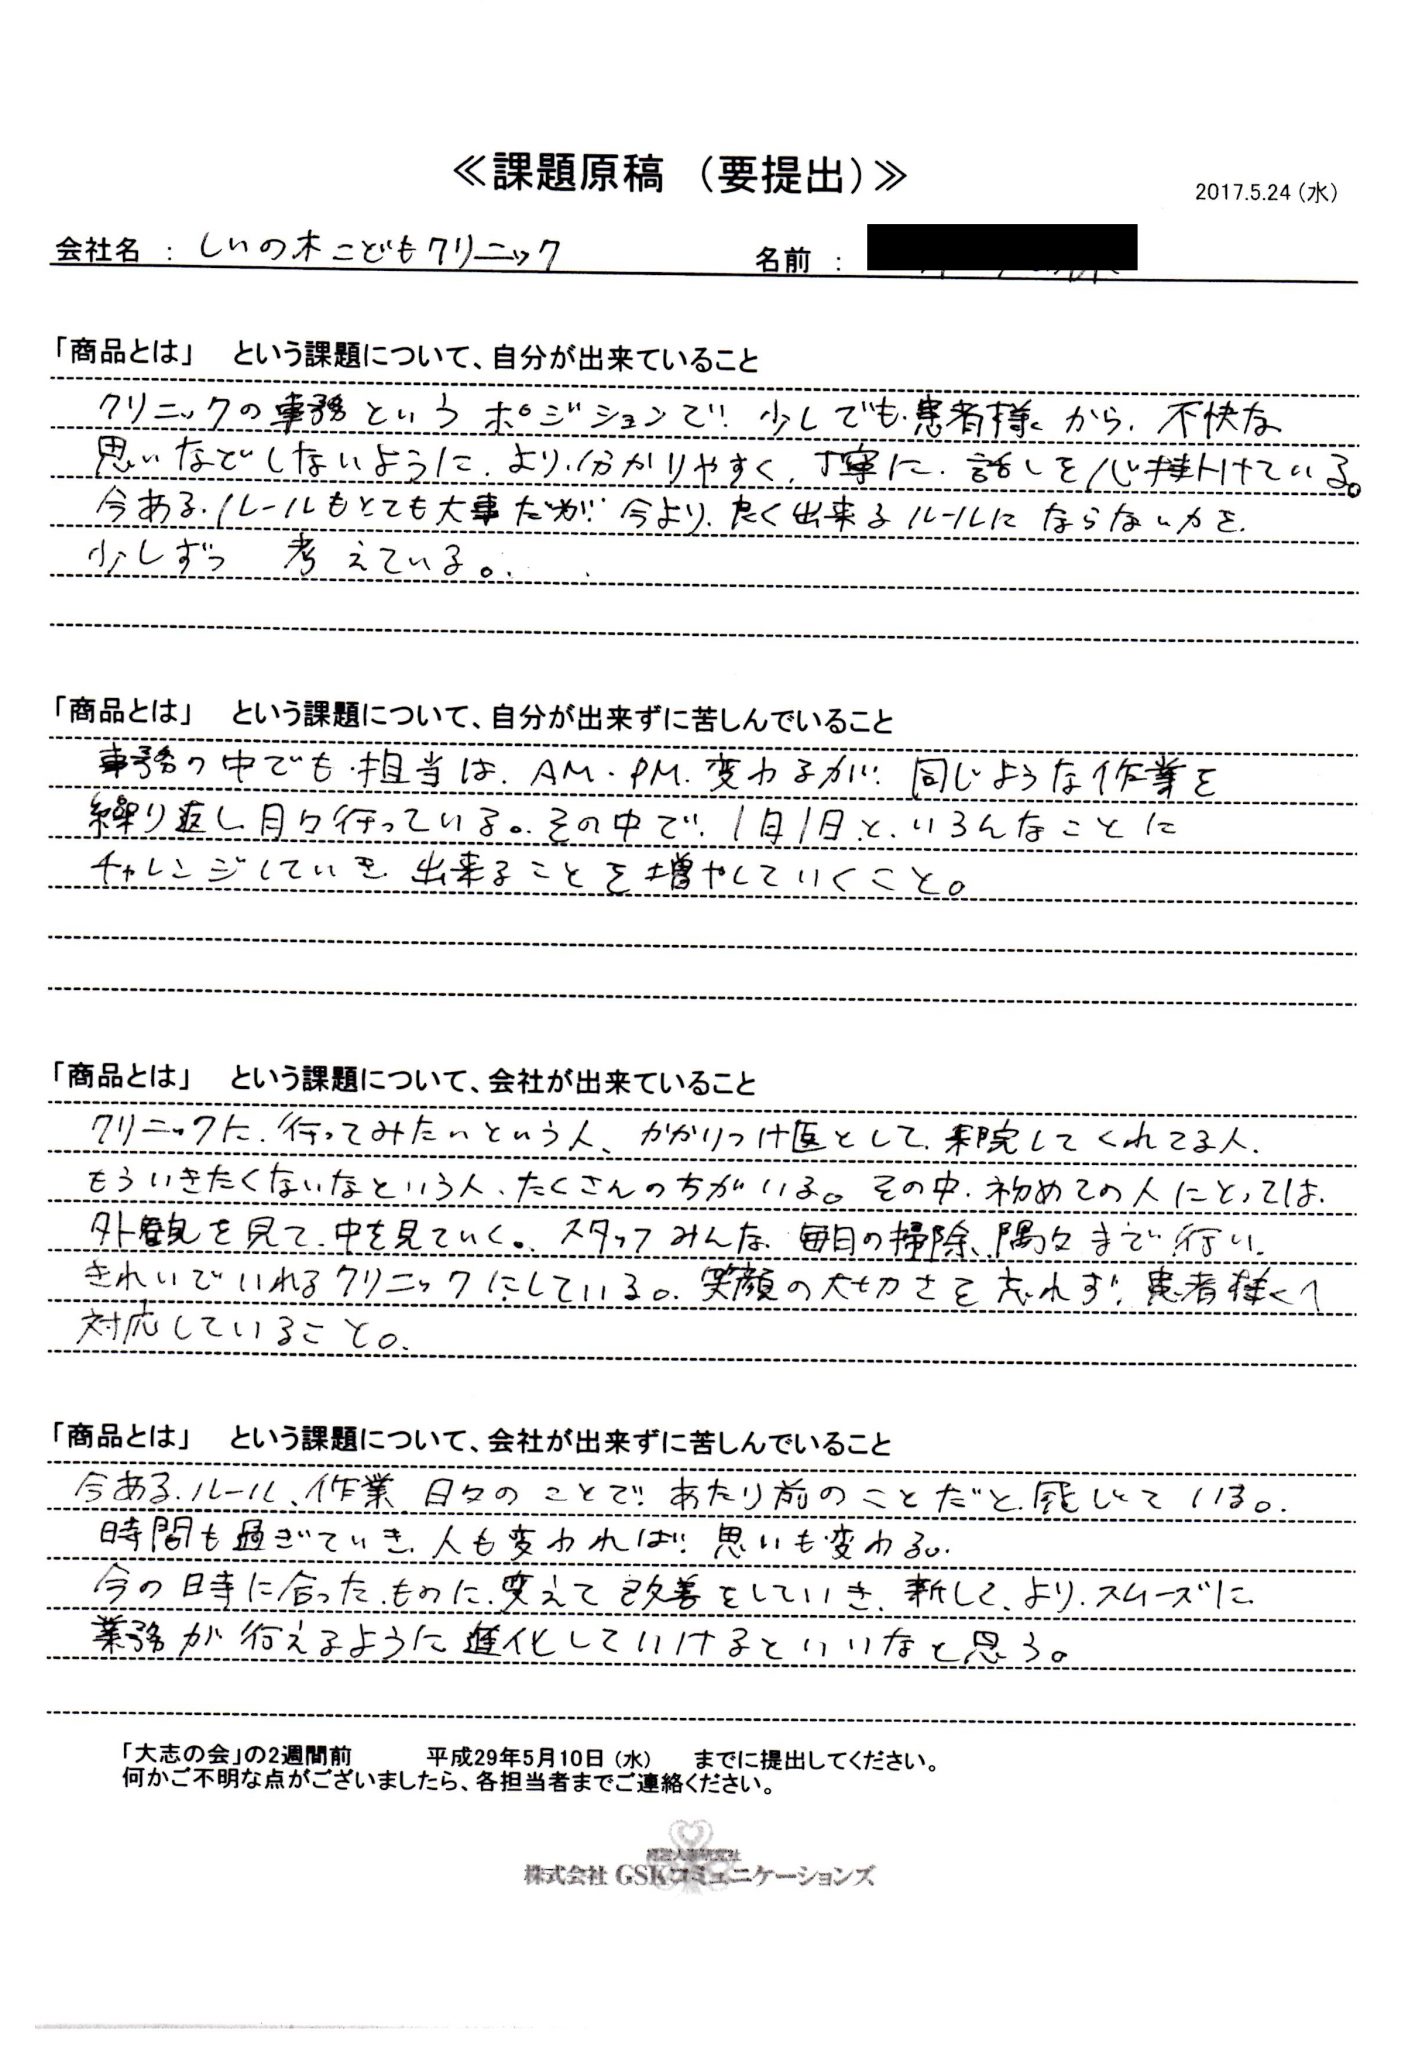 ≪課題原稿 （要提出）≫
2017.5.24（水）
会社名 ： しいの木こどもクリニック 名前 ：
「商品とは」 という課題について、自分が出来ていること
クリニックの事務というポジションで、少しでも、患者様から、不快な
思いなどしないように、より、分かりやすく、丁寧に、話しを心掛けている。
今ある、ルールもとても大事だが、今より、良く出来るルールにならないかを、
少しずつ 考えている。
「商品とは」 という課題について、自分が出来ずに苦しんでいること
事務の中でも、担当は、AM・PM、変わるが、同じような作業を
繰り返し、日々行っている。その中で、1日1日と、いろんなことに
チャレンジしていき、出来ることを増やしていくこと。
「商品とは」 という課題について、会社が出来ていること
クリニックに、行ってみたいという人、かかりつけ医として、来院してくれてる人、
もういきたくないなという人、たくさんの方がいる。その中、初めての人にとっては、
外観を見て、中を見ていく。スタッフみんな、毎日の掃除、隅々まで行い、
きれいでいれるクリニックにしている。笑顔の大切さを忘れず、患者様へ
対応していること。
「商品とは」 という課題について、会社が出来ずに苦しんでいること
今ある、ルール、作業、日々のことで、あたり前のことだと、感じている。
時間も過ぎていき、人も変われば、思いも変わる。
今の時に合った、ものに、変えて改善をしていき、新しく、より、スムーズに
業務が行えるように進化していけるといいなと思う。
「大志の会」の2週間前 平成29年5月10日（水） までに提出してください。
何かご不明な点がございましたら、各担当者までご連絡ください。
株式会社 GSKコミュニケーションズ